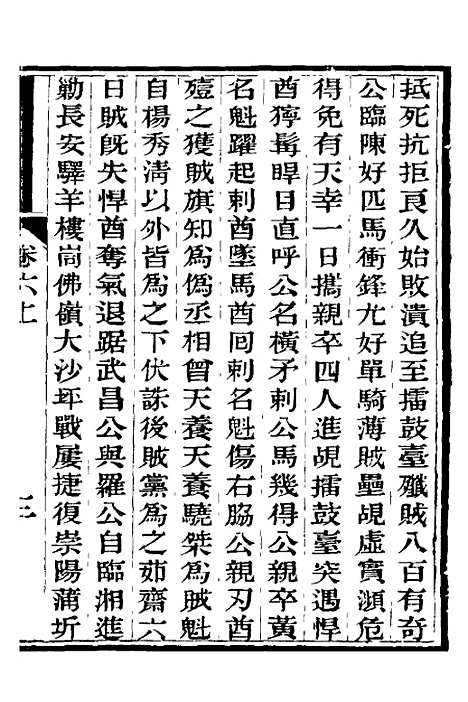 抵死抗拒良久始敗潰追至擂鼓臺殲賊八百有奇
公臨陳好匹馬衝鋒尤好單騎薄賊壘覘虛實瀕危
得免有天幸一日攜親卒四人進覘擂鼓臺突遇悍
酋獰髯睅目直呼公名橫矛刺公馬幾得公親卒黃
名魁躍起刺酋墜馬酋回刺名魁傷右脇公親刃酋
殪之獲賊旗知爲僞丞相曾天養天養驍桀爲賊魁
自楊秀淸以外皆爲之下伏誅後賊黨爲之茹齋六
日賊旣失悍酋奪氣退踞武昌公與羅公自臨湘進
勦長安驛羊樓峝佛嶺大沙坪戰屢捷復崇陽蒲圻
卷六上